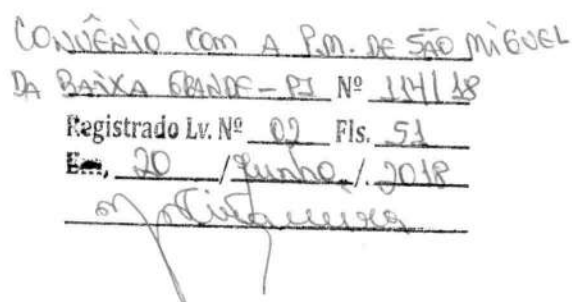 CONVÊNIO COM A P.M. DE SÃO MIGUEL
DA BAIXA GRANDE - PI Nº 114/18
Registrado Lv. Nº 02 Fls. 51
Em, 20 / Junho / 2018